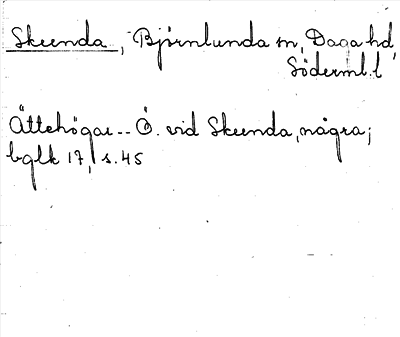 Skeenda, Björnlunda sn, Daga hd,
Söderml. l
Ättehögar -- Ö. vid Skeenda, några;
bglk 17, s. 45